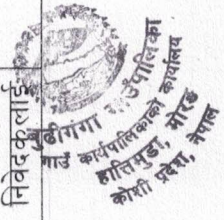 निवेदकलाई
बुढीगंगा गाउँपालिका
गाउँ कार्यपालिकाको कार्यालय
हात्तिमुडा, मोरङ
कोशी प्रदेश, नेपाल